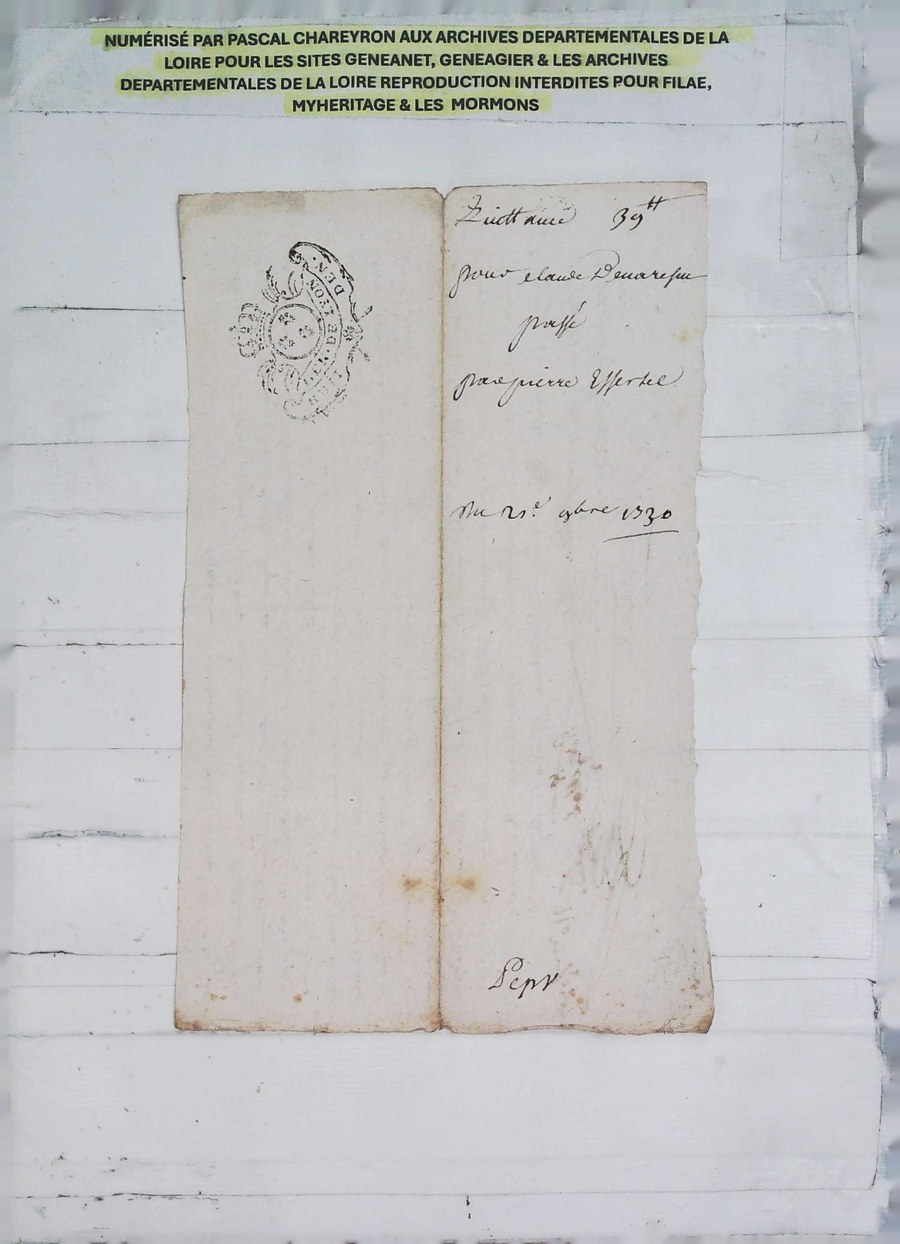 NUMÉRISÉ PAR PASCAL CHAREYRON AUX ARCHIVES DEPARTEMENTALES DE LA
LOIRE POUR LES SITES GENEANET, GENEAGIER & LES ARCHIVES
DEPARTEMENTALES DE LA LOIRE REPRODUCTION INTERDITES POUR FILAE,
MYHERITAGE & LES MORMONS
GEN. DE LYON
DEN.
39tt
pour claude
passé
par pierre Effertel
Du 21e 9bre 1730